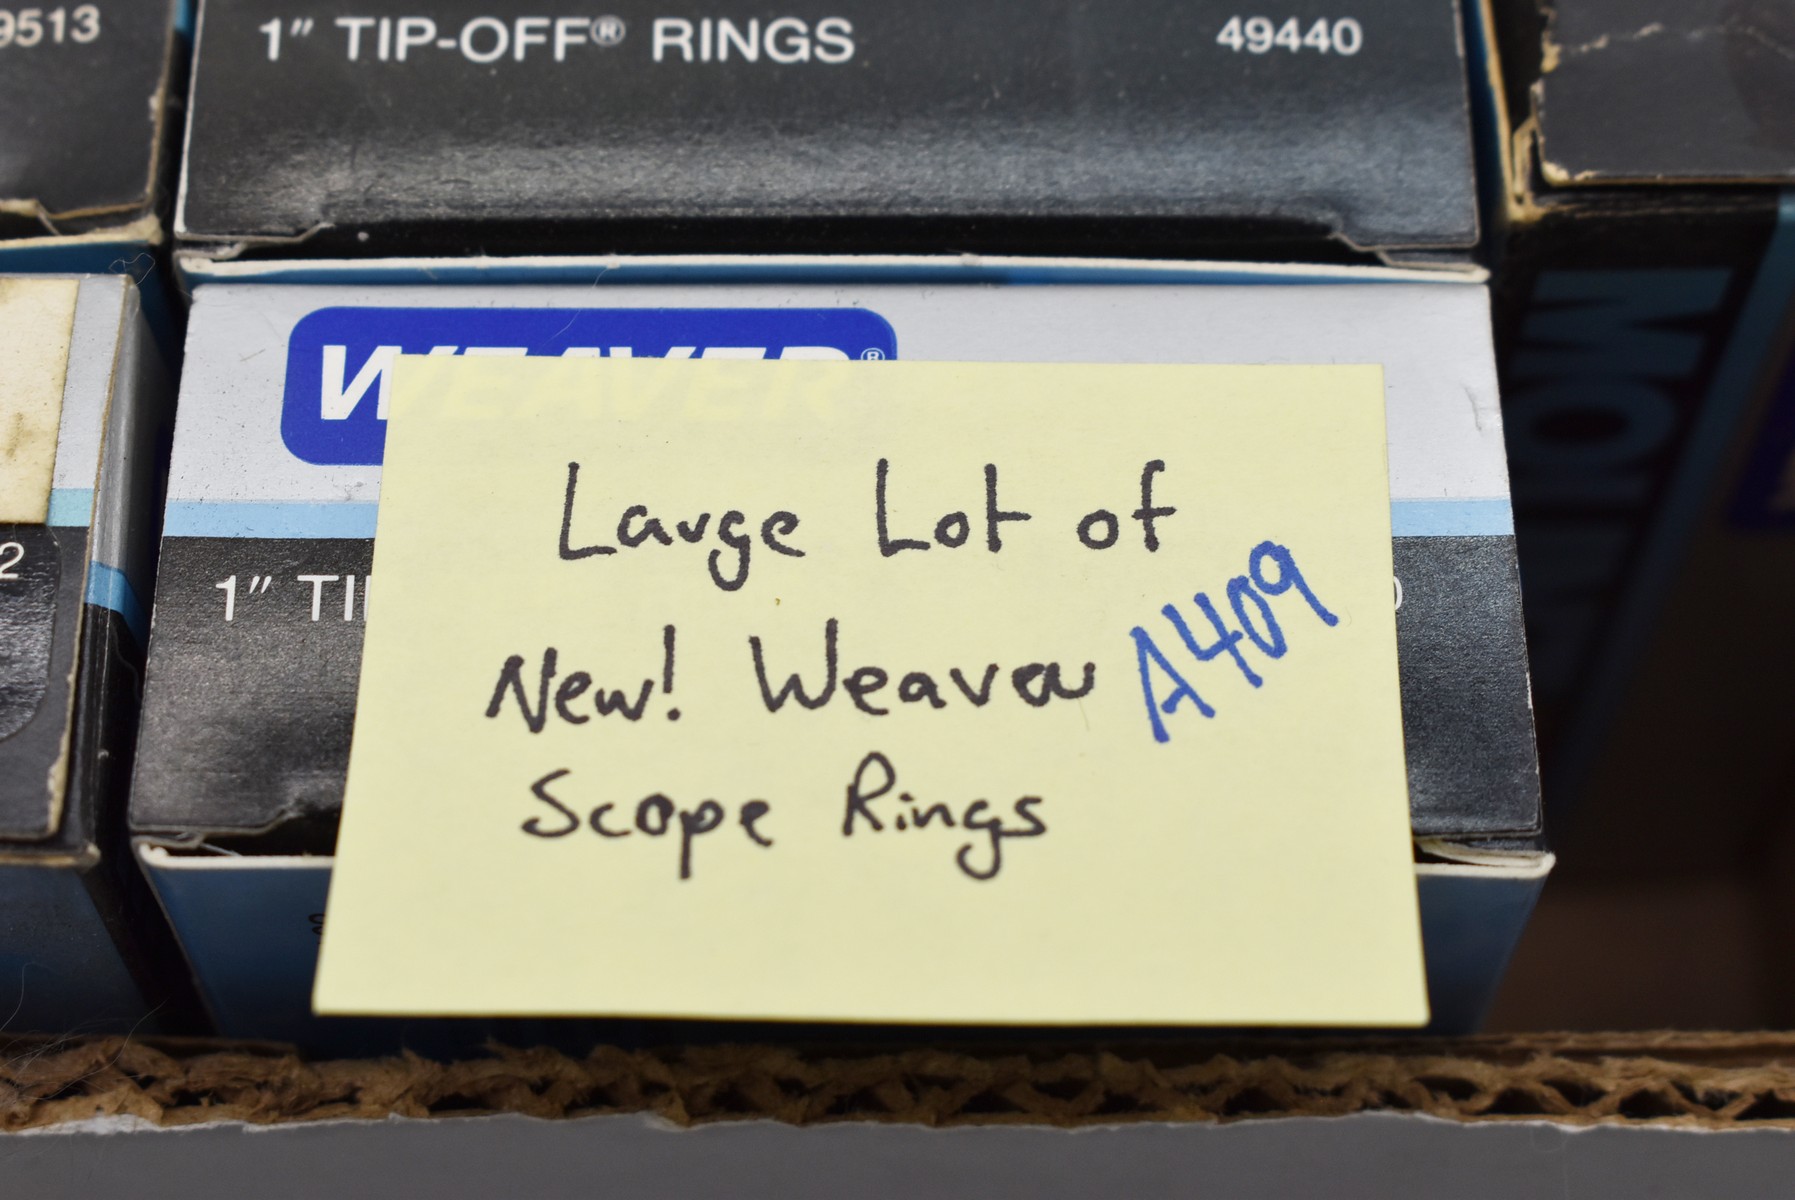 9513
1" TIP-OFF® RINGS 49440
WEAVER®
2
1" TI
Large Lot of
New! Weaver
A409
Scope Rings